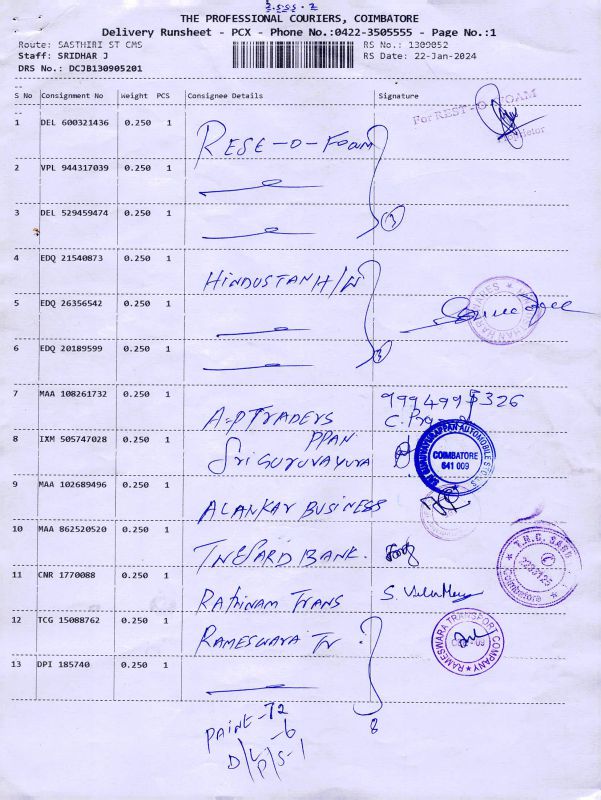 THE PROFESSIONAL COURIERS, COIMBATORE
Delivery Runsheet - PCX - Phone No.:0422-3505555 - Page No.:1
Route: SASTHIRI ST CMS
RS No.: 1309052
Staff: SRIDHAR J
RS Date: 22-Jan-2024
DRS No.: DCJB130905201
S No Consignment No Weight PCS Consignee Details Signature
For REST-O-FOAM
1 DEL 600321436 0.250 1
RESE-O-FOAM
2 VPL 944317039 0.250 1
3 DEL 529459474 0.250 1
4 EDQ 21540873 0.250 1
HINDUSTAN H/W
5 EDQ 26356542 0.250 1
6 EDQ 20189599 0.250 1
7 MAA 108261732 0.250 1
A-P TRADERS
9994995326
8 IXM 505747028 0.250 1
PPAN
SRI GURUVAYURA
SRI GURUVAYURAPPAN AUTOMOBILES
COIMBATORE
641 009
9 MAA 102689496 0.250 1
ALANKAR BUSINESS
10 MAA 862520520 0.250 1
TNESARD BANK.
11 CNR 1770088 0.250 1
RATHINAM TRANS
12 TCG 15088762 0.250 1
RAMESWARA TR
RAMESWARA TRANSPORT COMPANY
13 DPI 185740 0.250 1
8
PAINE-72
D/L-6
P/S-1